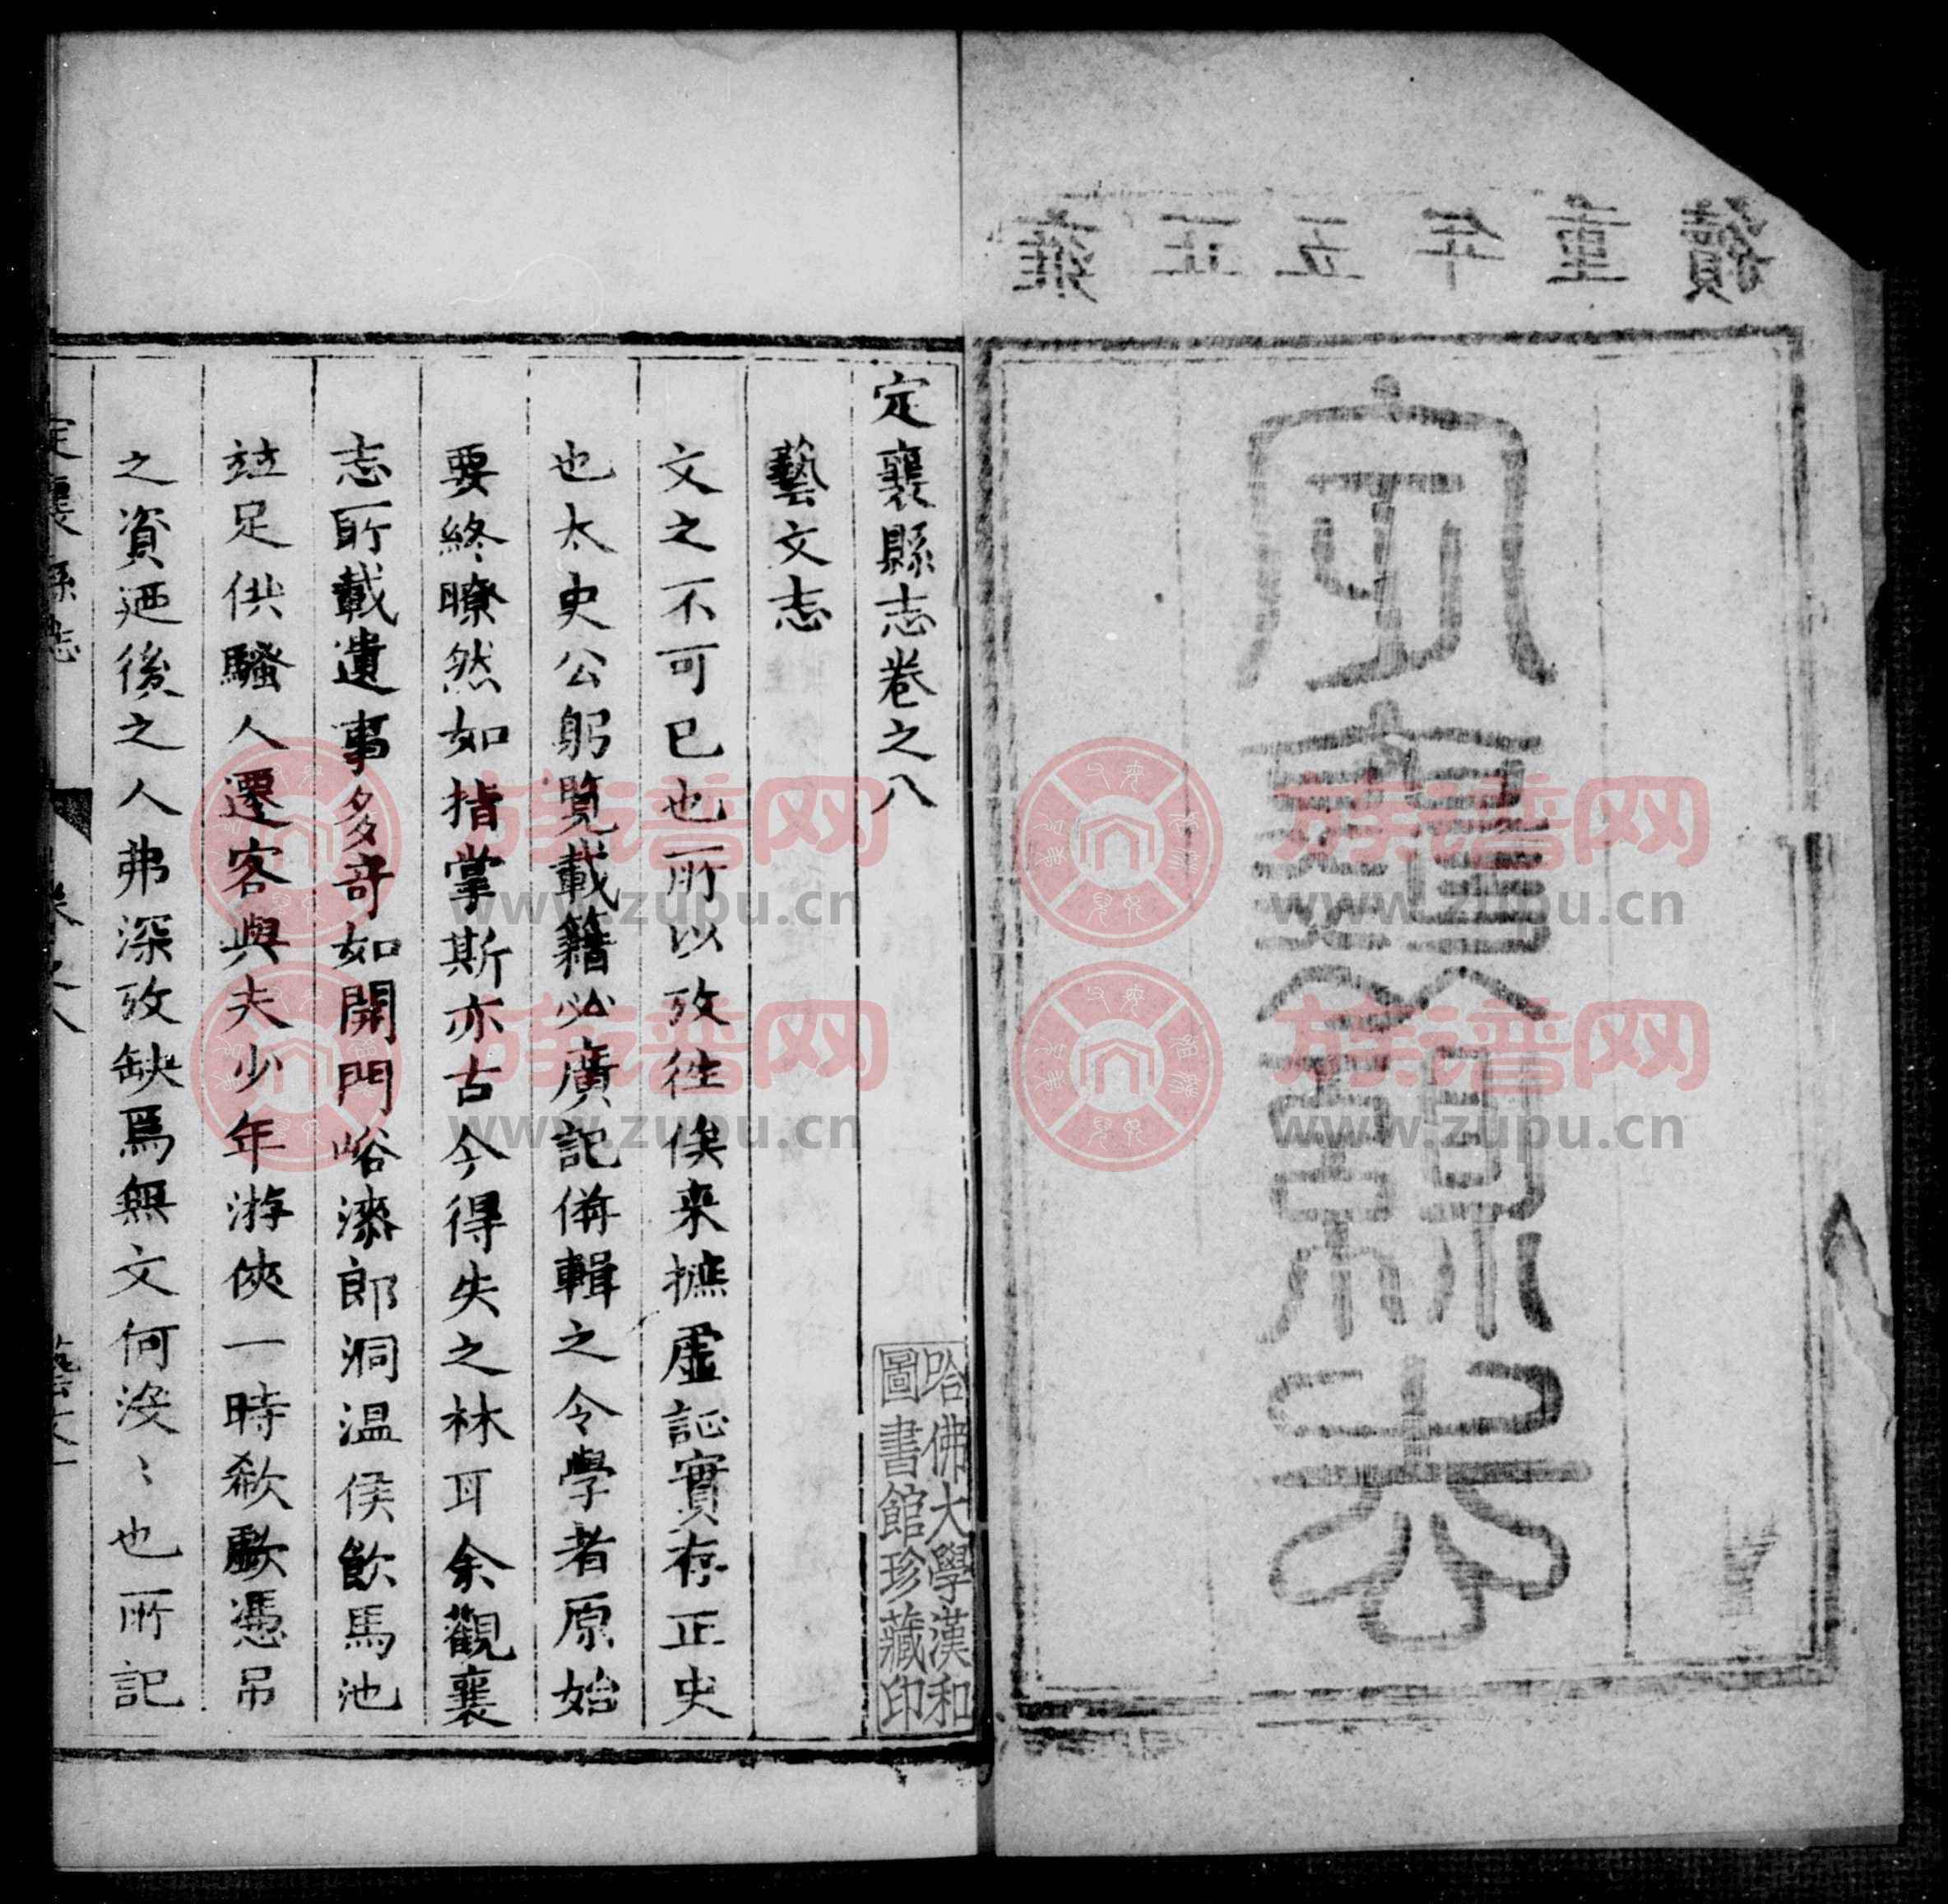 雍正五年重續
定襄縣志
定襄縣志卷之八
藝文志
文之不可已也所以攷徃俟来摭虛証實存正史
也太史公躬覽載籍必廣記俻輯之令學者原始
要終瞭然如指掌斯亦古今得失之林耳余觀襄
志所載遺事多竒如開門峪漆郎洞温侯飲馬池
竝足供騷人遷客與夫少年游俠一時欷歔憑吊
之資廼後之人弗深攷缺焉無文何沒〻也所記
哈佛大學漢和
圖書館珍藏印
定襄縣志
卷之八
藝文一
族谱网
www.zupu.cn
族谱网
www.zupu.cn
族谱网
www.zupu.cn
族谱网
www.zupu.cn